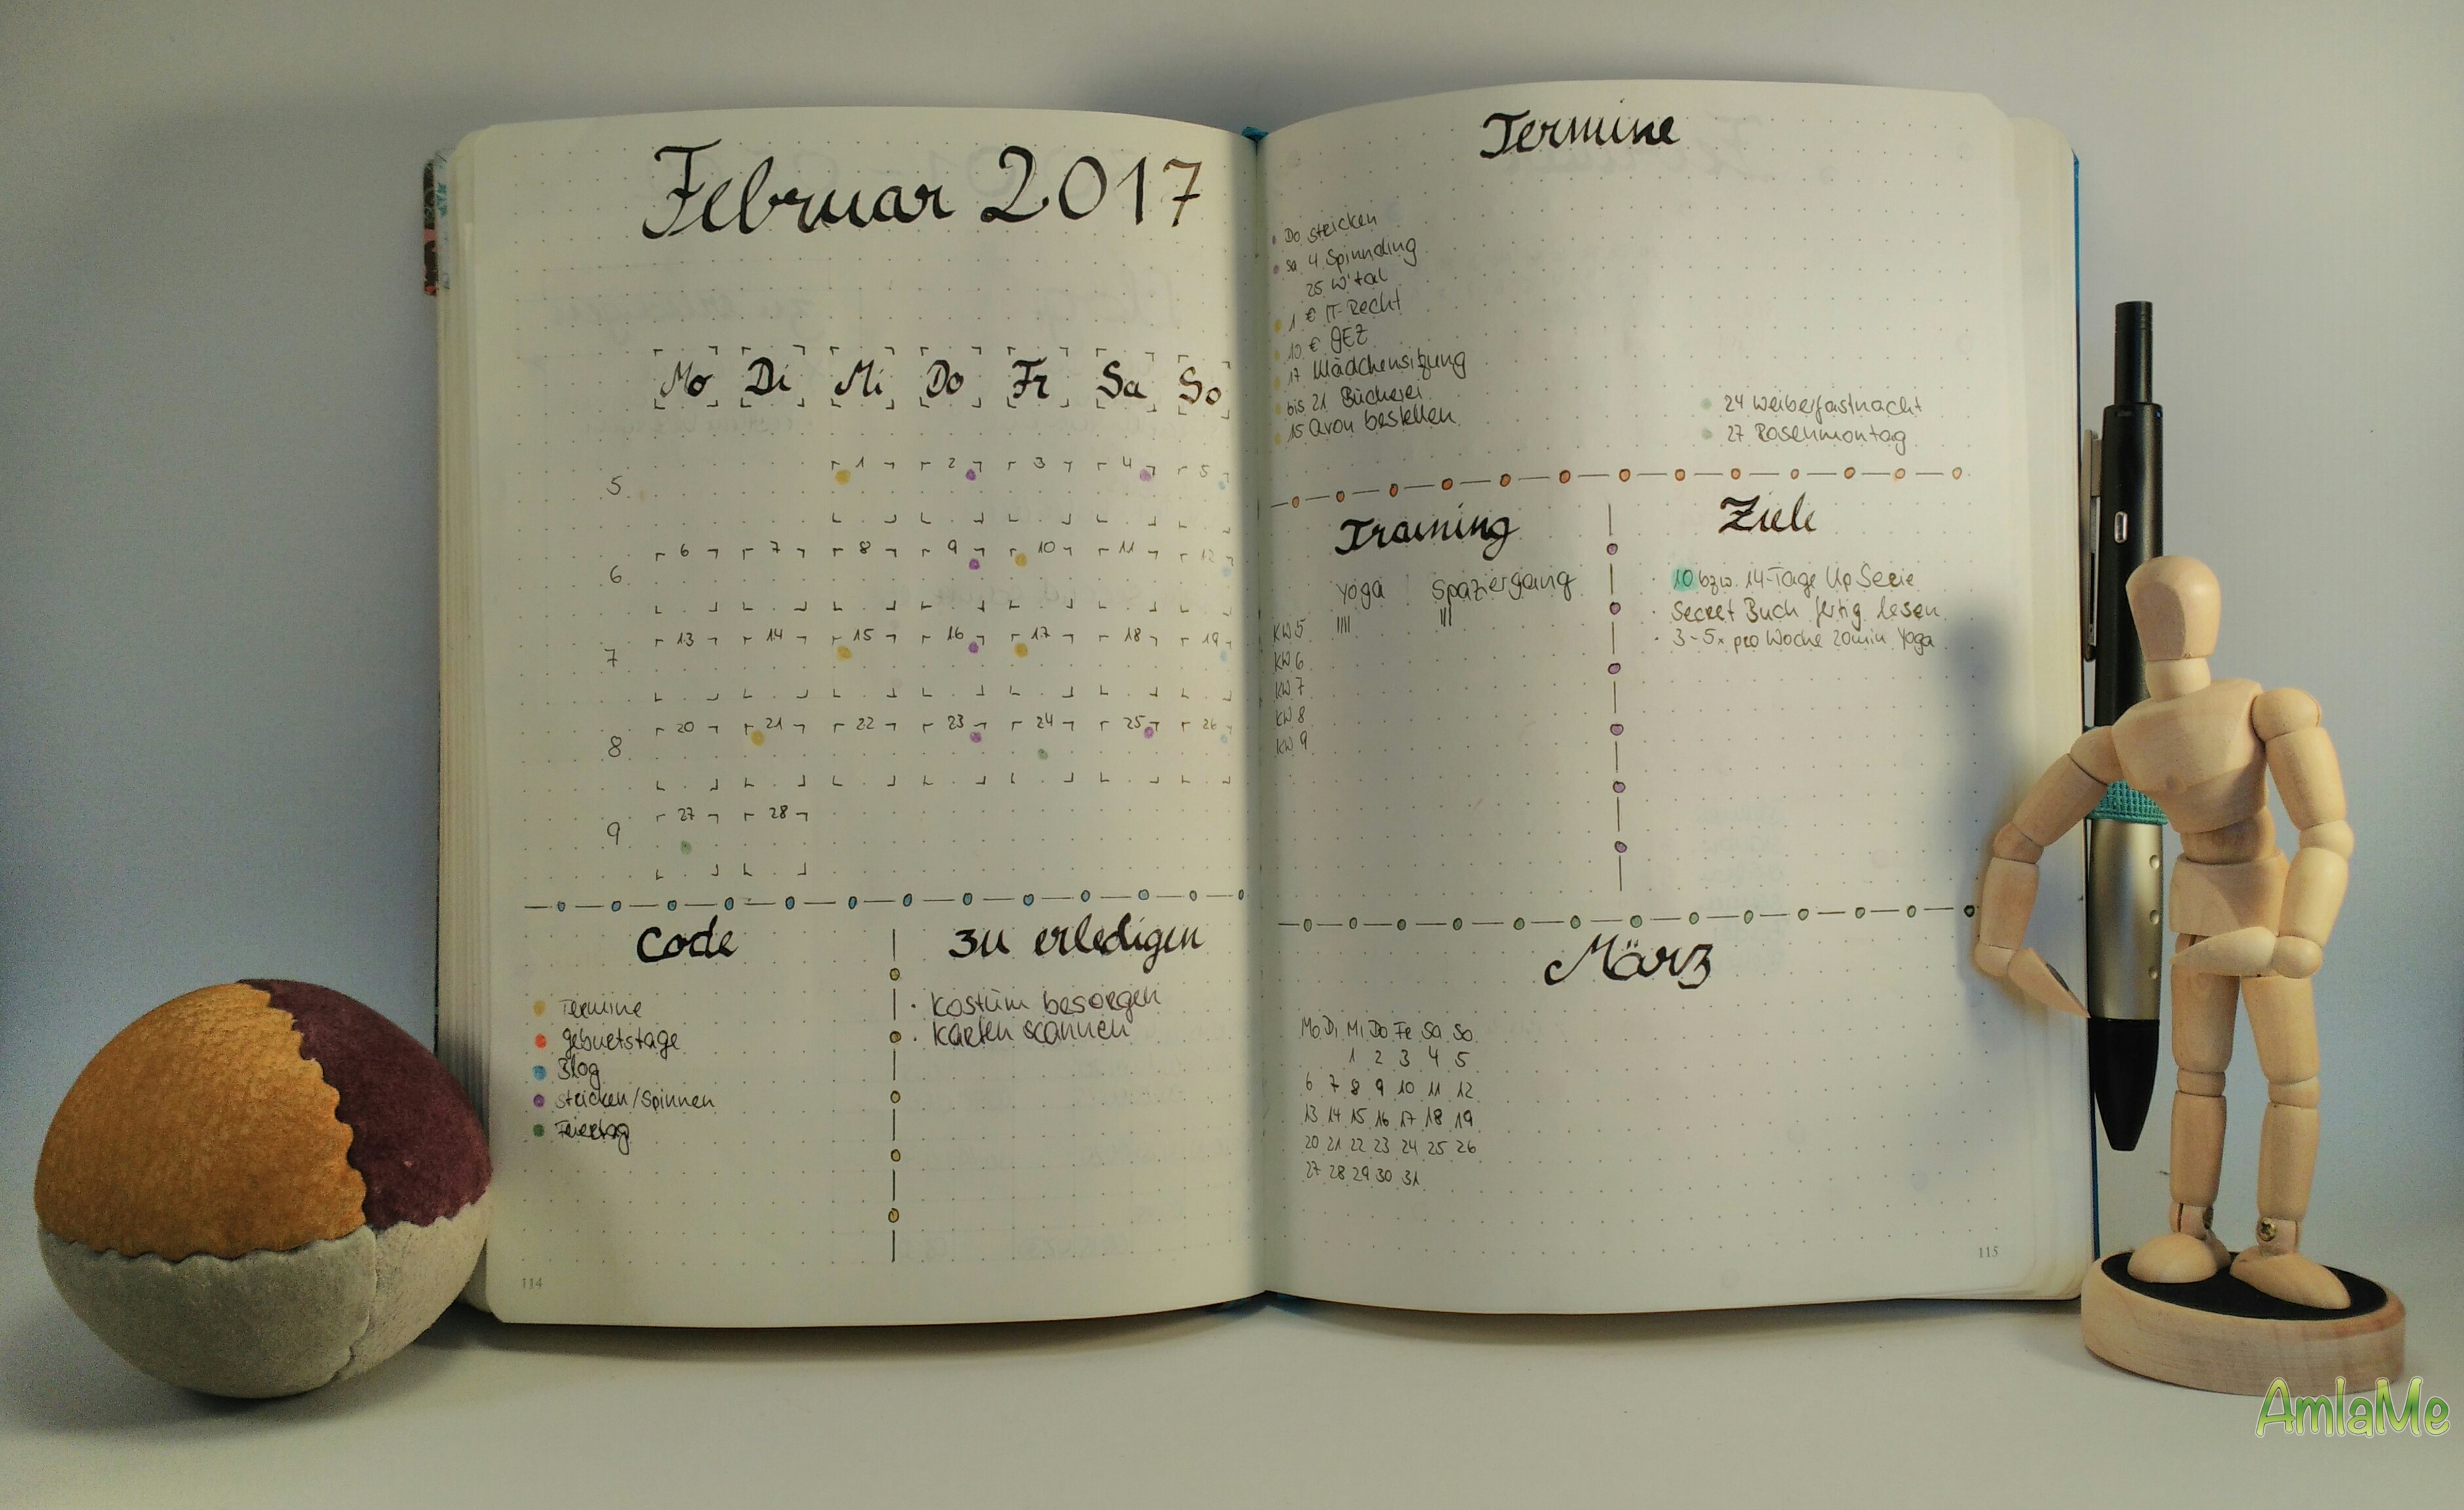 Februar 2017
Mo Di Mi Do Fr Sa So
5 1 2 3 4 5
6 6 7 8 9 10 11 12
7 13 14 15 16 17 18 19
8 20 21 22 23 24 25 26
9 27 28
Code
Termine
Geburtstage
Blog
stricken/Spinnen
Feiertag
zu erledigen
· Kostüm besorgen
· Karten scannen
114
Termine
Do stricken
Sa 4 Spinnding
25 W'tal
1 € IT-Recht
10 € GEZ
17 Mädchensitzung
bis 21 Bücherei
15 Avon bestellen
24 Weiberfastnacht
27 Rosenmontag
Training
Yoga Spaziergang
KW 5 |||| |||
KW 6
KW 7
KW 8
KW 9
Ziele
· 10 bzw. 14-Tage Up Serie
· Secret Buch fertig lesen
· 3-5x pro Woche 20min Yoga
März
Mo Di Mi Do Fr Sa So
1 2 3 4 5
6 7 8 9 10 11 12
13 14 15 16 17 18 19
20 21 22 23 24 25 26
27 28 29 30 31
115
AmlaMe